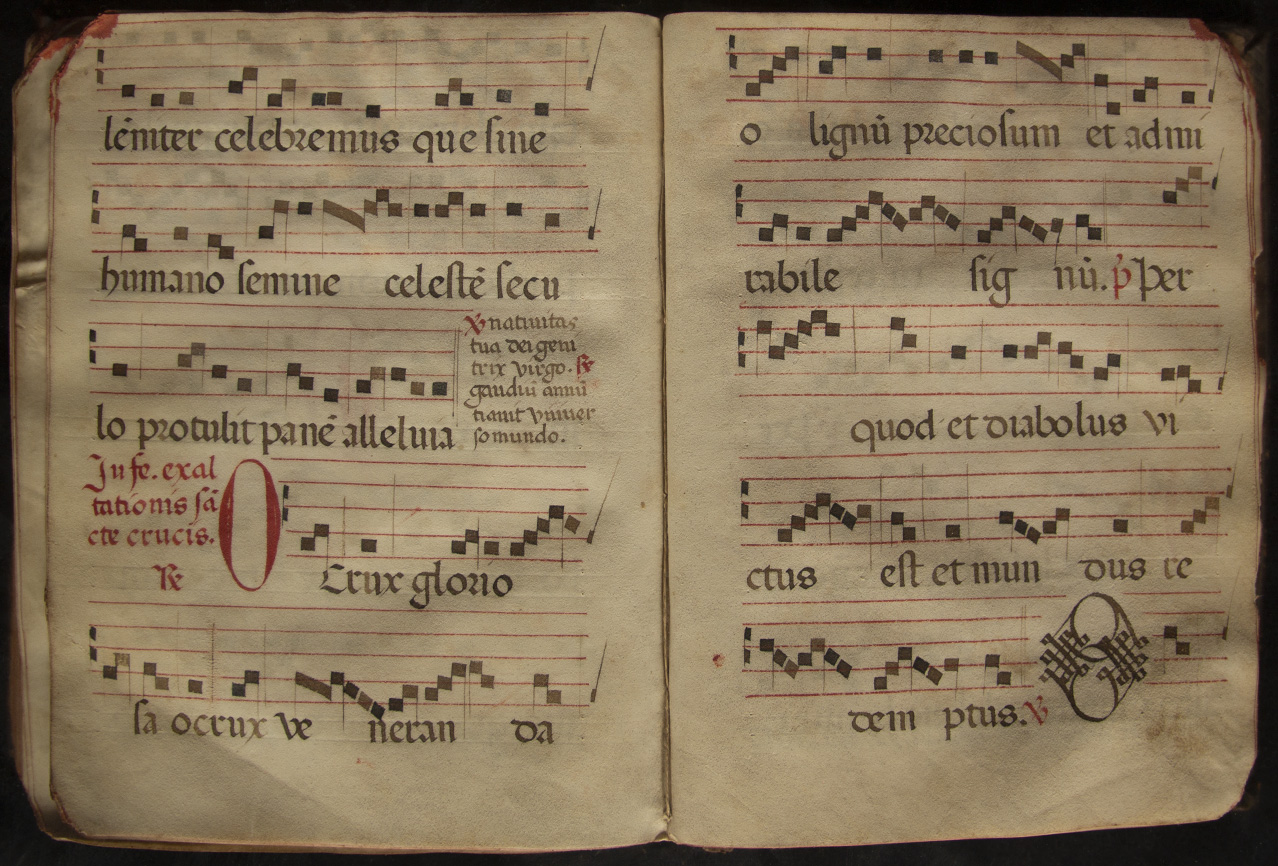 lēniter celebremus que sine
humano semine celestē secu
℣ natiuitas
tua dei geni
trix virgo. ℟
gaudiū annū
tiauit vniuer
so mundo.
lo protulit panē alleluia
In fe. exal
tationis sā
cte crucis.
℟
O Crux glorio
sa o crux ve neran da
o lignū preciosum et admi
rabile sig nū. p̄ Per
quod et diabolus vi
ctus est et mun dus re
dem ptus. ℣